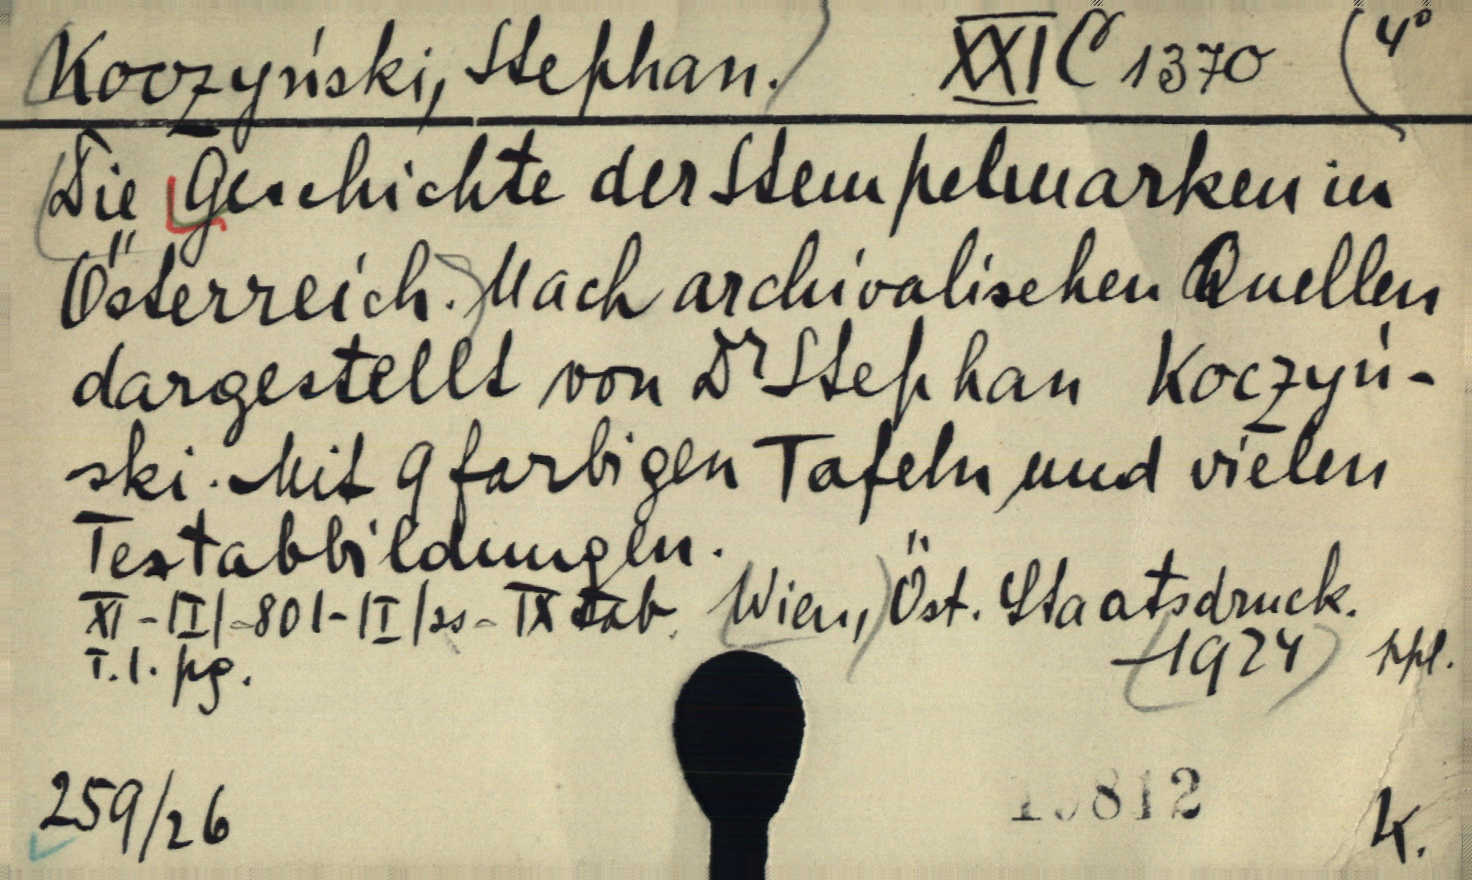 Koczyński, Stephan. XXI C 1370 4°
Die Geschichte der Stempelmarken in
Österreich. Nach archivalischen Quellen
dargestellt von Dr Stephan Koczyń-
ski. Mit 9 farbigen Tafeln und vielen
Textabbildungen.
XI-|I|-801-|I| ss - IX tab. Wien, Öst. Staatsdruck.
T.l. pg. 1924 hpl.
259/26 812
K.